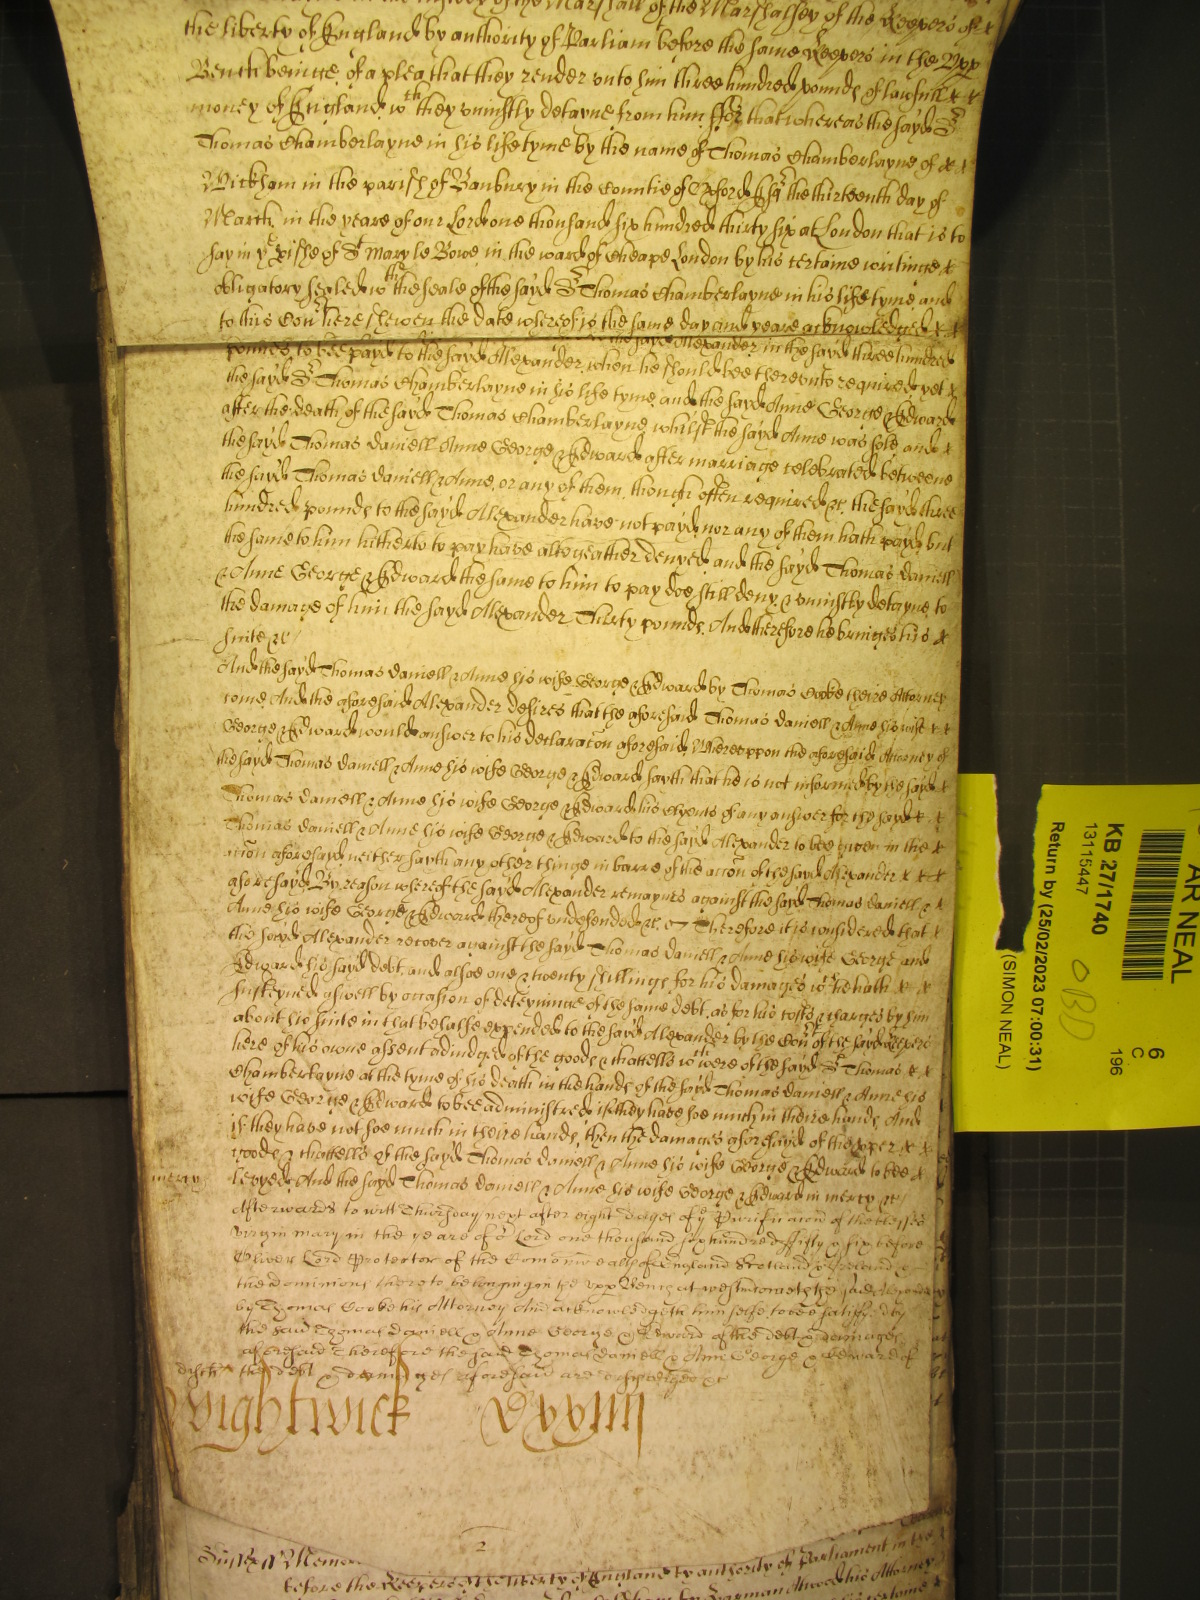 in the custody of the Marshall of the Marshalsey of the Keepers of
the liberty of England by authority of Parliam before the same Keepers in the Upp
Bench beinge, of a plea that they render unto him three hundred pounds of lawfull
money of England wch they uniustly detayne from him ffor that whereas the sayd Sr
Thomas Chamberlayne in his life tyme by the name of Thomas Chamberlayne of
Wickham in the parish of Banbury in the Countie of Oxford Esqr the thirteenth day of
March in the yeare of our Lord one thousand six hundred thirty six at London that is to
say in ye pishe of St Mary le Bowe in the ward of Cheape London by his certaine writinge
obligatory sealed wth the seale of the sayd Sr Thomas Chamberlayne in his life tyme and
to this Court here shewen the date whereof is the same day and yeare acknowledged
the sayd Alexander in the sayd three hundred
pounds to bee payd to the sayd Alexander when he should bee thereunto required yet
the sayd Sr Thomas Chamberlayne in his life tyme and the sayd Anne George & Edward
after the death of the sayd Thomas Chamberlayne whilst the sayd Anne was sole, and
the sayd Thomas Daniell Anne George & Edward after marriage celebrated betweene
the sayd Thomas Daniell & Anne, or any of them, though often required &c, the sayd three
hundred pounds to the sayd Alexander have not payd, nor any of them hath payd, but
the same to him hitherto to pay have altogeather denyed, and the sayd Thomas Daniell
& Anne George & Edward the same to him to pay doe still deny, & uniustly detayne to
the damage of him the sayd Alexander Thirty pounds, And therefore he bringes his
suite &c
And the sayd Thomas Daniell & Anne his wife George & Edward by Thomas Cooke theire Attorney
come, And the aforesaid Alexander desires that the aforesaid Thomas Daniell & Anne his wife
George & Edward would answer to his declaracon aforesaid, Whereuppon the aforesaid Attorney of
the sayd Thomas Daniell & Anne his wife George & Edward sayth that he is not informed by the sayd
Thomas Daniell & Anne his wife George & Edward his Clyents of any answer for the sayd
Thomas Daniell & Anne his wife George & Edward to the sayd Alexander to bee given in the
accon aforesayd neither sayth any other thinge in barre of the accon of the sayd Alexander
aforesayd, By reason whereof the sayd Alexander remaynes against the sayd Thomas Daniell &
Anne his wife George & Edward thereof undefended, &c Therefore it is considered that
the sayd Alexander recover against the sayd Thomas Daniell & Anne his wife George and
Edward his sayd debt, and alsoe one & twenty shillings for his damages wch he hath
susteyned aswell by occasion of deteyninge of the same debt, as for his costs & charges by him
about his suite in that behalfe expended to the sayd Alexander by the Court of the sayd Keepers
here of his owne assent adiudged of the goods & chattells wch were of the sayd Sr Thomas
Chamberlayne at the tyme of his death in the hands of the sayd Thomas Daniell & Anne his
wife George & Edward to bee administred if they have soe much in theire hands, And
if they have not soe much in theire hands, then the damages aforesayd of the proper
goods & chattells of the sayd Thomas Daniell & Anne his wife George & Edward to bee
mercy levyed, And the sayd Thomas Daniell & Anne his wife George & Edward in mercy &c
Afterwards to witt Thursday next after eight dayes of ye Purificacon of the blessed
virgin mary in the yeare of or Lord one thousand six hundred ffifty & six before
Oliver Lord Protector of the Comonwealth of England Scotland & Ireland &
the Dominions thereto belonging in the upp Bench at westm cometh the said Alexander
by Thomas Cooke his Attorney And acknowledgeth himselfe to bee satisfied by
the said Thomas Daniell & Anne George & Edward of the debt & damages
aforesaid Therefore the said Thomas Daniell & Anne George & Edward of
disch the debt & damages aforesaid are discharged &c
Wightwick Dxxiiii
2
before the Keepers of the liberty of England by authority of Parliament in the
Attorney
AR NEAL
KB 27/1740
13115447
Return by (25/02/2023 07:00:31)
(SIMON NEAL)
OBD
6
C
196